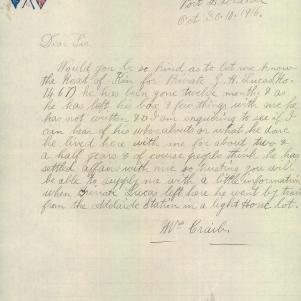 Port Adelaide
Oct 30. 10. 1916.
Dear Sir
Would you be so kind as to let me know
the Next of Kin for Private J. H. Lucas No.
1467 he has been gone twelve months & as
he has left his box & few things with me he
has not written & so I am enquiring to see if I
can hear of his whereabouts or what he done
he lived here with me for about two &
a half years & of course people think he has
settled affairs with me so trusting you will
be able to supply me with a little information
when Private Lucas left here he went by train
from the Adelaide Station in a light Horse lot.
Mrs Craib